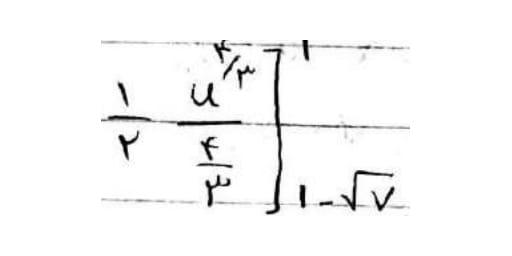 ۱/۲ u^(۴/۳) / (۴/۳) ]_{۱-√۷}^{۱}